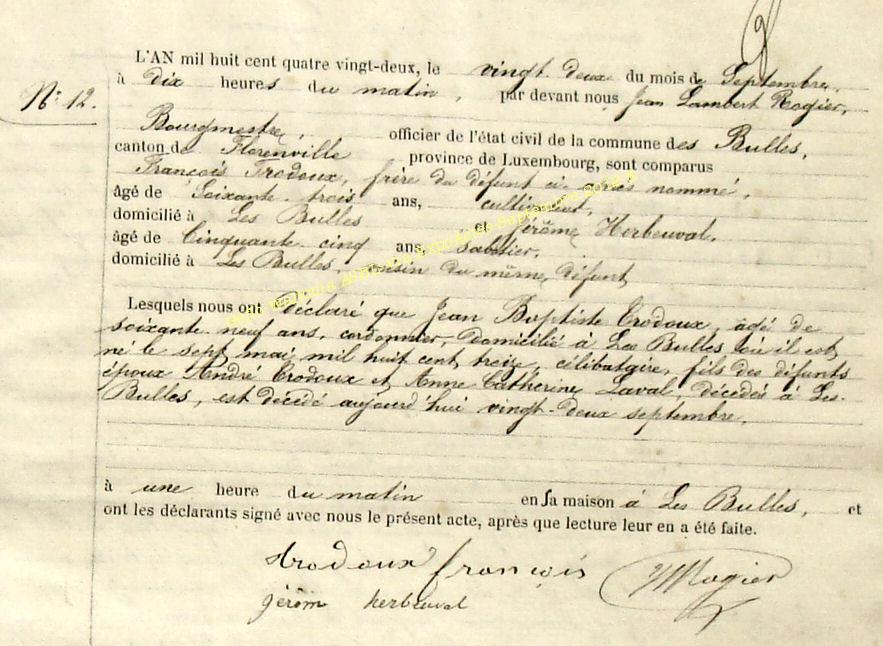 L'AN mil huit cent quatre vingt-deux, le vingt deux du mois de Septembre,
à dix heures du matin, par devant nous Jean Lambert Rogier,
N° 12.
Bourgmestre, officier de l'état civil de la commune des Bulles,
canton de Florenville province de Luxembourg, sont comparus
François Trodoux, frère du défunt ci-après nommé,
âgé de Soixante trois ans, cultivateur,
domicilié à Les Bulles et Jérôme Herbeuval,
âgé de Cinquante cinq ans, sabotier,
domicilié à Les Bulles, voisin du même défunt
Lesquels nous ont déclaré que Jean Baptiste Trodoux, âgé de
soixante neuf ans, cordonnier, domicilié à Les Bulles où il est
né le sept mai mil huit cent treize, célibataire, fils des défunts
époux André Trodoux et Anne Catherine Laval, décédés à Les-
Bulles, est décédé aujourd'hui vingt-deux septembre,
à une heure du matin en sa maison à Les Bulles, et
ont les déclarants signé avec nous le présent acte, après que lecture leur en a été faite.
trodoux françois
Rogier
jérôm herbeuval